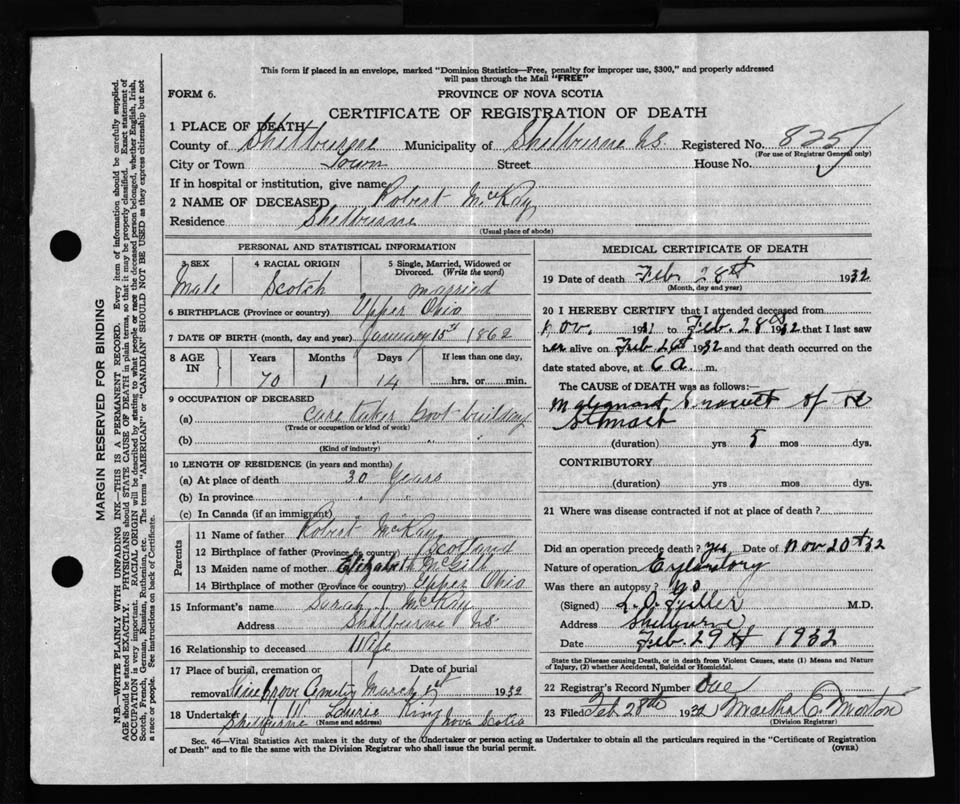 This form if placed in an envelope, marked "Dominion Statistics—Free, penalty for improper use, $300," and properly addressed
will pass through the Mail "FREE"
FORM 6.
PROVINCE OF NOVA SCOTIA
CERTIFICATE OF REGISTRATION OF DEATH
1 PLACE OF DEATH
County of Shelburne Municipality of Shelburne N.S. Registered No. 825
(For use of Registrar General only)
City or Town Town Street House No.
If in hospital or institution, give name
2 NAME OF DECEASED Robert McKay
Residence Shelburne
(Usual place of abode)
PERSONAL AND STATISTICAL INFORMATION
3 SEX 4 RACIAL ORIGIN 5 Single, Married, Widowed or
Divorced. (Write the word)
Male Scotch married
6 BIRTHPLACE (Province or country) Upper Ohio
7 DATE OF BIRTH (month, day and year) January 15th 1862
8 AGE IN Years Months Days If less than one day,
70 1 14 hrs. or min.
9 OCCUPATION OF DECEASED
(a) care taker Govt building
(Trade or occupation or kind of work)
(b) " "
(Kind of industry)
10 LENGTH OF RESIDENCE (in years and months)
(a) At place of death 30 Years
(b) In province " "
(c) In Canada (if an immigrant)
Parents
11 Name of father Robert McKay
12 Birthplace of father (Province or country) Scotland
13 Maiden name of mother Elizabeth McGill
14 Birthplace of mother (Province or country) Upper Ohio
15 Informant's name Sarah J. McKay
Address Shelburne N.S.
16 Relationship to deceased Wife
17 Place of burial, cremation or Date of burial
removal Cemetry March 1st 1932
18 Undertaker W. King
Shelburne (Name and address) Nova Scotia
MEDICAL CERTIFICATE OF DEATH
19 Date of death Feb. 28th 1932
(Month, day and year)
20 I HEREBY CERTIFY that I attended deceased from
Nov. 1931 to Feb. 28th 1932 that I last saw
her alive on Feb. 26th 1932 and that death occurred on the
date stated above, at 6 a. m.
The CAUSE OF DEATH was as follows:
Malignant of the
Stomach
(duration) yrs 5 mos dys.
CONTRIBUTORY
(duration) yrs mos dys.
21 Where was disease contracted if not at place of death?
Did an operation precede death? yes Date of Nov 20th 32
Nature of operation Explanatory
Was there an autopsy? No
(Signed) L. O. Fuller M.D.
Address Shelburne
Date Feb. 29th 1932
State the Disease causing Death, or in death from Violent Causes, state (1) Means and Nature
of Injury, (2) whether Accidental, Suicidal or Homicidal.
22 Registrar's Record Number One
23 Filed Feb 28th 1932 Martha C. Morton
(Division Registrar)
Sec. 46—Vital Statistics Act makes it the duty of the Undertaker or person acting as Undertaker to obtain all the particulars required in the "Certificate of Registration
of Death" and to file the same with the Division Registrar who shall issue the burial permit.
(OVER)
MARGIN RESERVED FOR BINDING
N.B.—WRITE PLAINLY WITH UNFADING INK—THIS IS A PERMANENT RECORD. Every item of information should be carefully supplied.
AGE should be stated EXACTLY. PHYSICIANS should STATE CAUSE OF DEATH in plain terms, so that it may be properly classified. Exact statement of
OCCUPATION is very important. RACIAL ORIGIN will be described by stating to what people or race the deceased person belonged, whether English, Irish,
Scotch, French, German, Russian, Ruthenian, etc. The terms "AMERICAN" or "CANADIAN" SHOULD NOT BE USED as they express citizenship but not
a race or people. See instructions on back of Certificate.